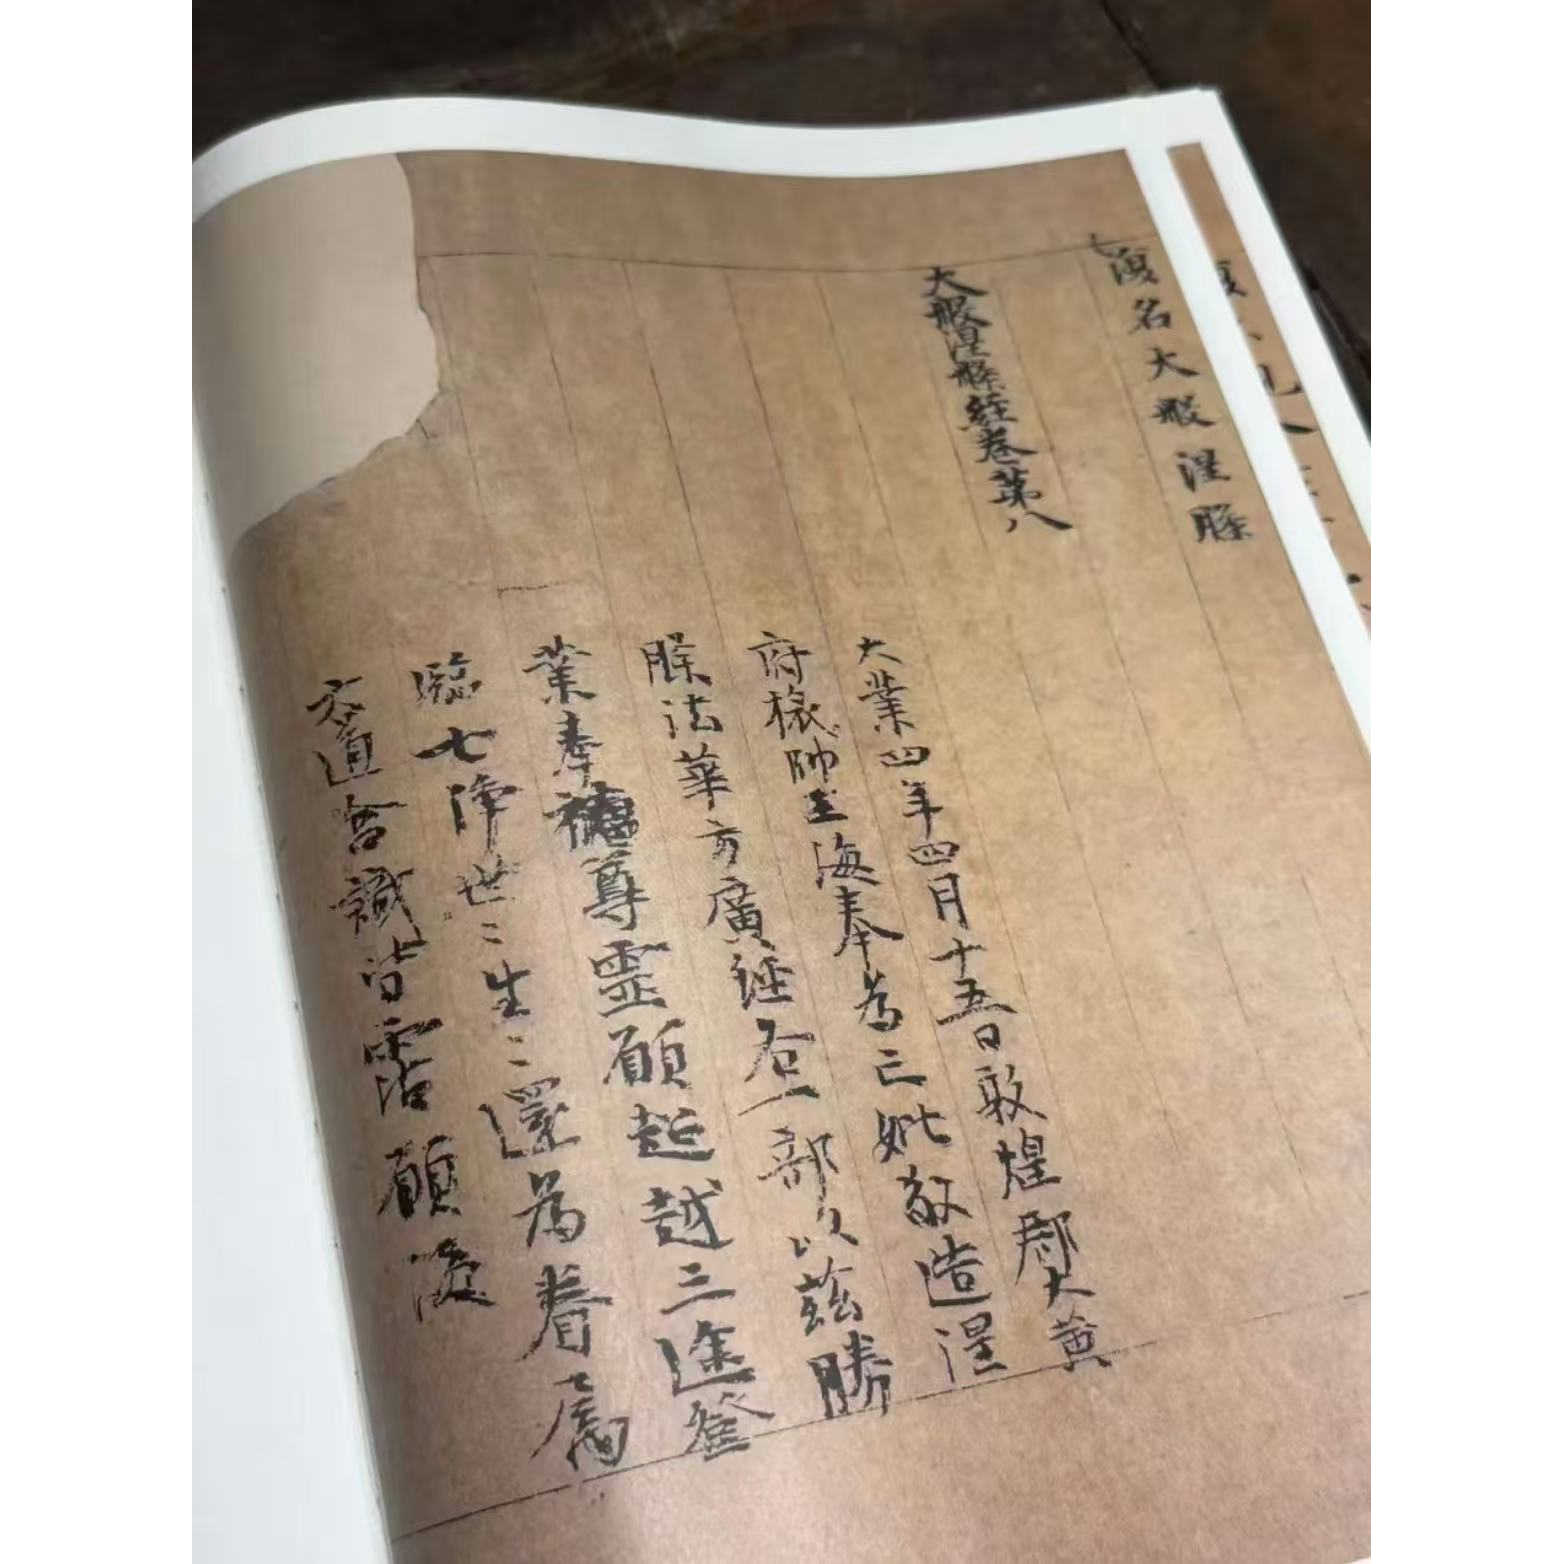 復名大般涅槃
大般涅槃經卷第八
大業四年四月十五日敦煌郡大黃
府旅帥王海奉為亡妣敬造涅
槃法華方廣經各一部以茲勝
業奉福尊靈願超越三途登
臨七淨世〻生〻還為眷屬
六道含識皆霑願